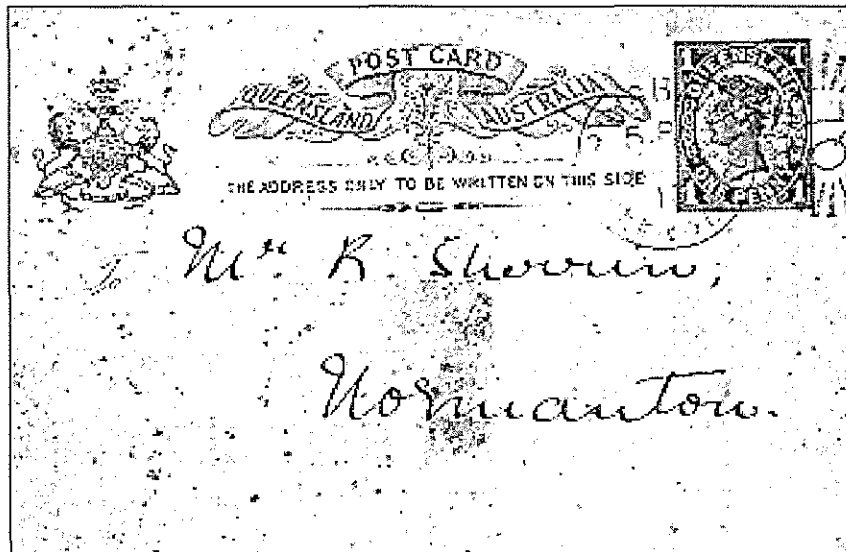 POST CARD
QUEENSLAND AUSTRALIA
THE ADDRESS ONLY TO BE WRITTEN ON THIS SIDE
QUEENSLAND
ONE PENNY
Mr. R.
Normanton.